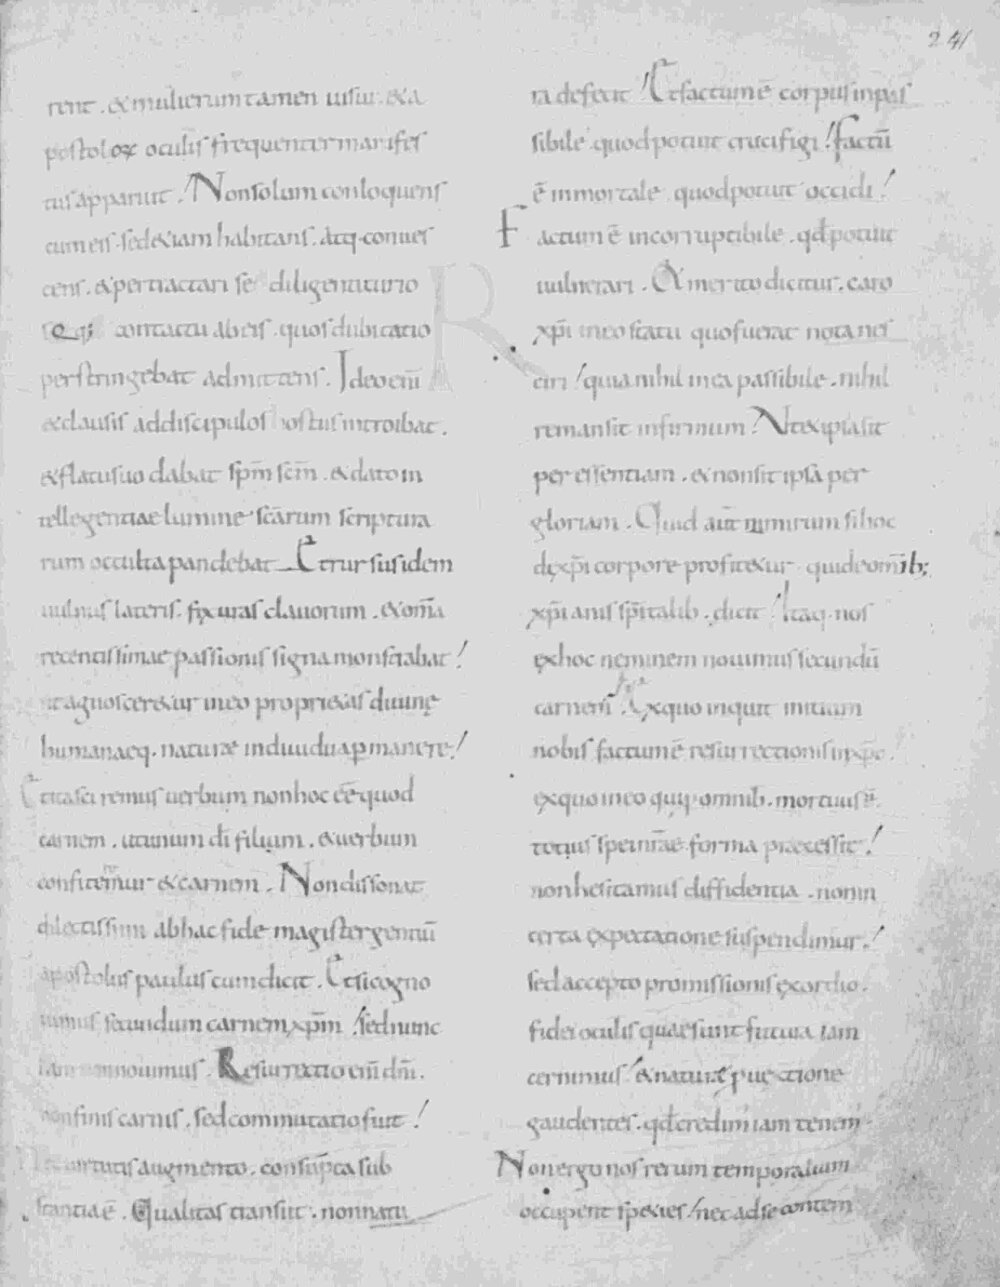 241
rent . & mulierum tamen uisui . & a
postolorum oculis frequenter manifes
tus apparuit . Non solum conloquens
cum eis . sed etiam habitans . atq. conues
cens . & pertractari se diligenti curio
soq; contactu ab eis . quos dubitatio
perstringebat admittens . Ideo eni̅
& clausis ad discipulos hostiis introibat .
& flatu suo dabat sp̅m sc̅m . & dato in
tellegentiae lumine sc̅arum scriptura
rum occulta pandebat Et rursus idem
uulnus lateris . fixuras clauorum . & om̅a
recentissimae passionis signa monstrabat
ut agnosceretur in eo proprietas diuinę
humanaeq. naturae indiuidua p̱manere
Et ita sciremus uerbum non hoc e̅e quod
carnem . ut unum di̅ filium . & uerbum
confiteremur & carnem . Non dissonat
dilectissimi ab hac fide magister gentiu̅
apostolus paulus cum dicit . Et si cogno
uimus secundum carnem xp̅m sed nunc
iam non nouimus . Resurrectio eni̅ dn̅i .
non finis carnis . sed commutatio fuit
Nec uirtutis augmento . consu̅pta sub
stantia e̅ . Qualitas transiit . non natu
ra defecit Et factum e̅ corpus inpas
sibile quod potuit crucifigi Factu̅
e̅ inmortale quod potuit occidi
Factum e̅ incorruptibile . qd̅ potuit
uulnerari . Et merito dicitur . caro
xp̅i in eo statu quo fuerat nota nes
ciri quia nihil in ea passibile . nihil
remansit infirmum Ut & ipsa sit
per essentiam . & non sit ipsa per
gloriam . Quid aut̅ mirum si hoc
de xp̅i corpore profitetur qui de om̅ib;
xp̅ianis sp̅italib . dicit Itaq. nos
ex hoc neminem nouimus secundu̅
carnem̅ . Ex quo inquit initium
nobis factum e̅ resurrectionis in xp̅o
ex quo in eo qui p̱ omnib. mortuus e̅
totius spei nr̅ae forma praecessit
non hesitamus diffidentia . non in
certa expectatione suspendimur
sed accepto promissionis exordio .
fidei oculis quae sunt futura iam
cernimus & naturae puectione
gaudentes . qd̅ credim' iam tenem'
Non ergo nos rerum temporalium
occupent species nec ad se contem̅